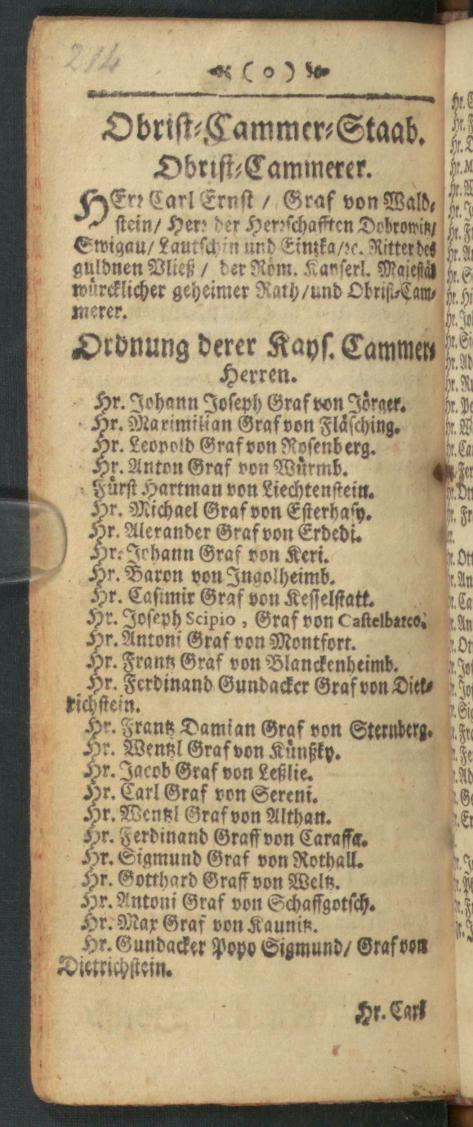 214
( o )
Obrist-Cammer-Staab.
Obrist-Cammerer.
HErr Carl Ernst / Graf von Wald-
stein/ Herr der Herrschafften Dobrowitz/
Swigau/ Lautschin und Eintzka/ꝛc. Ritter des
guldnen Vließ / der Röm. Kayserl. Majestät
würcklicher geheimer Rath/und Obrist-Cam-
merer.
Ordnung derer Kays. Cammer-
Herren.
Hr. Johann Joseph Graf von Jörger.
Hr. Maximilian Graf von Fläsching.
Hr. Leopold Graf von Rosenberg.
Hr. Anton Graf von Würmb.
Fürst Hartman von Liechtenstein.
Hr. Michael Graf von Esterhasy.
Hr. Alexander Graf von Erdedi.
Hr. Johann Graf von Keri.
Hr. Baron von Ingolheimb.
Hr. Casimir Graf von Kesselstatt.
Hr. Joseph Scipio, Graf von Castelbarco.
Hr. Antoni Graf von Montfort.
Hr. Frantz Graf von Blanckenheimb.
Hr. Ferdinand Gundacker Graf von Diet-
richstein.
Hr. Frantz Damian Graf von Sternberg.
Hr. Wentzl Graf von Künßky.
Hr. Jacob Graf von Leßlie.
Hr. Carl Graf von Sereni.
Hr. Wentzl Graf von Althan.
Hr. Ferdinand Graff von Caraffa.
Hr. Sigmund Graf von Rothall.
Hr. Gotthard Graff von Weltz.
Hr. Antoni Graf von Schaffgotsch.
Hr. Max Graf von Kaunitz.
Hr. Gundacker Popo Sigmund/ Graf von
Dietrichstein.
Hr. Carl